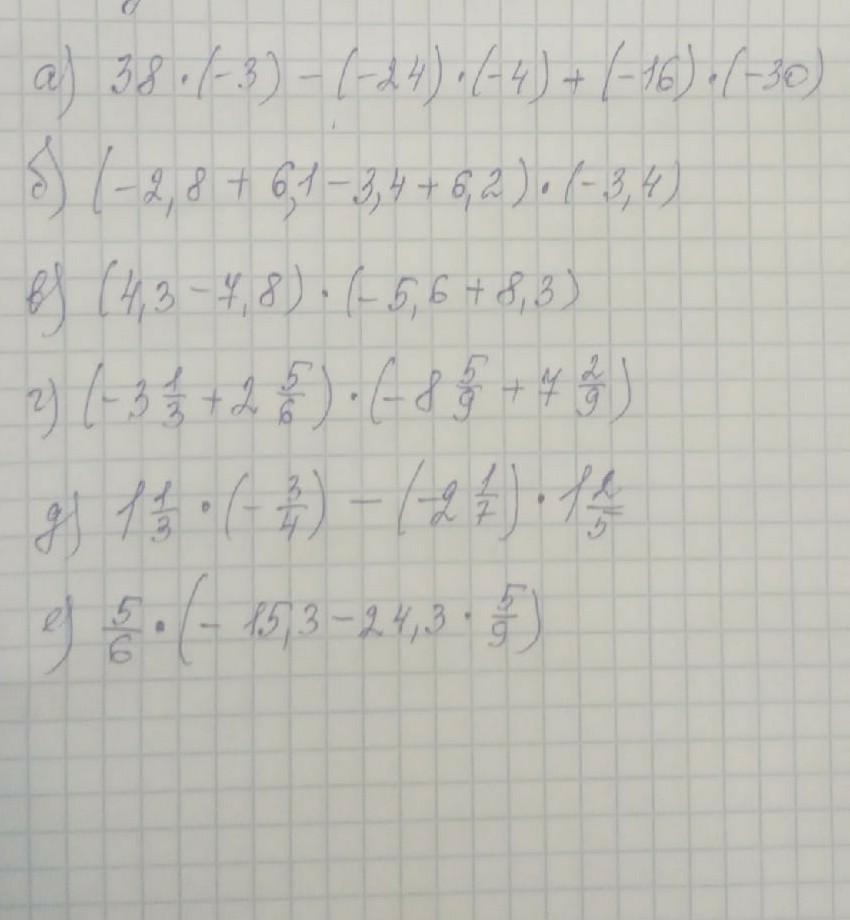 а) 38 · (-3) - (-24) · (-4) + (-16) · (-30)
б) (-2,8 + 6,1 - 3,4 + 6,2) · (-3,4)
в) (4,3 - 7,8) · (-5,6 + 8,3)
г) (-3 1/3 + 2 5/6) · (-8 5/9 + 7 2/9)
д) 1 1/3 · (-3/4) - (-2 1/7) · 1 2/5
е) 5/6 · (-15,3 - 24,3 · 5/9)